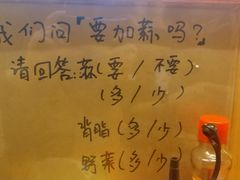 我们问『要加蒜吗?』
请回答:蒜(要/不要)
(多/少)
背脂(多/少)
野菜(多/少)